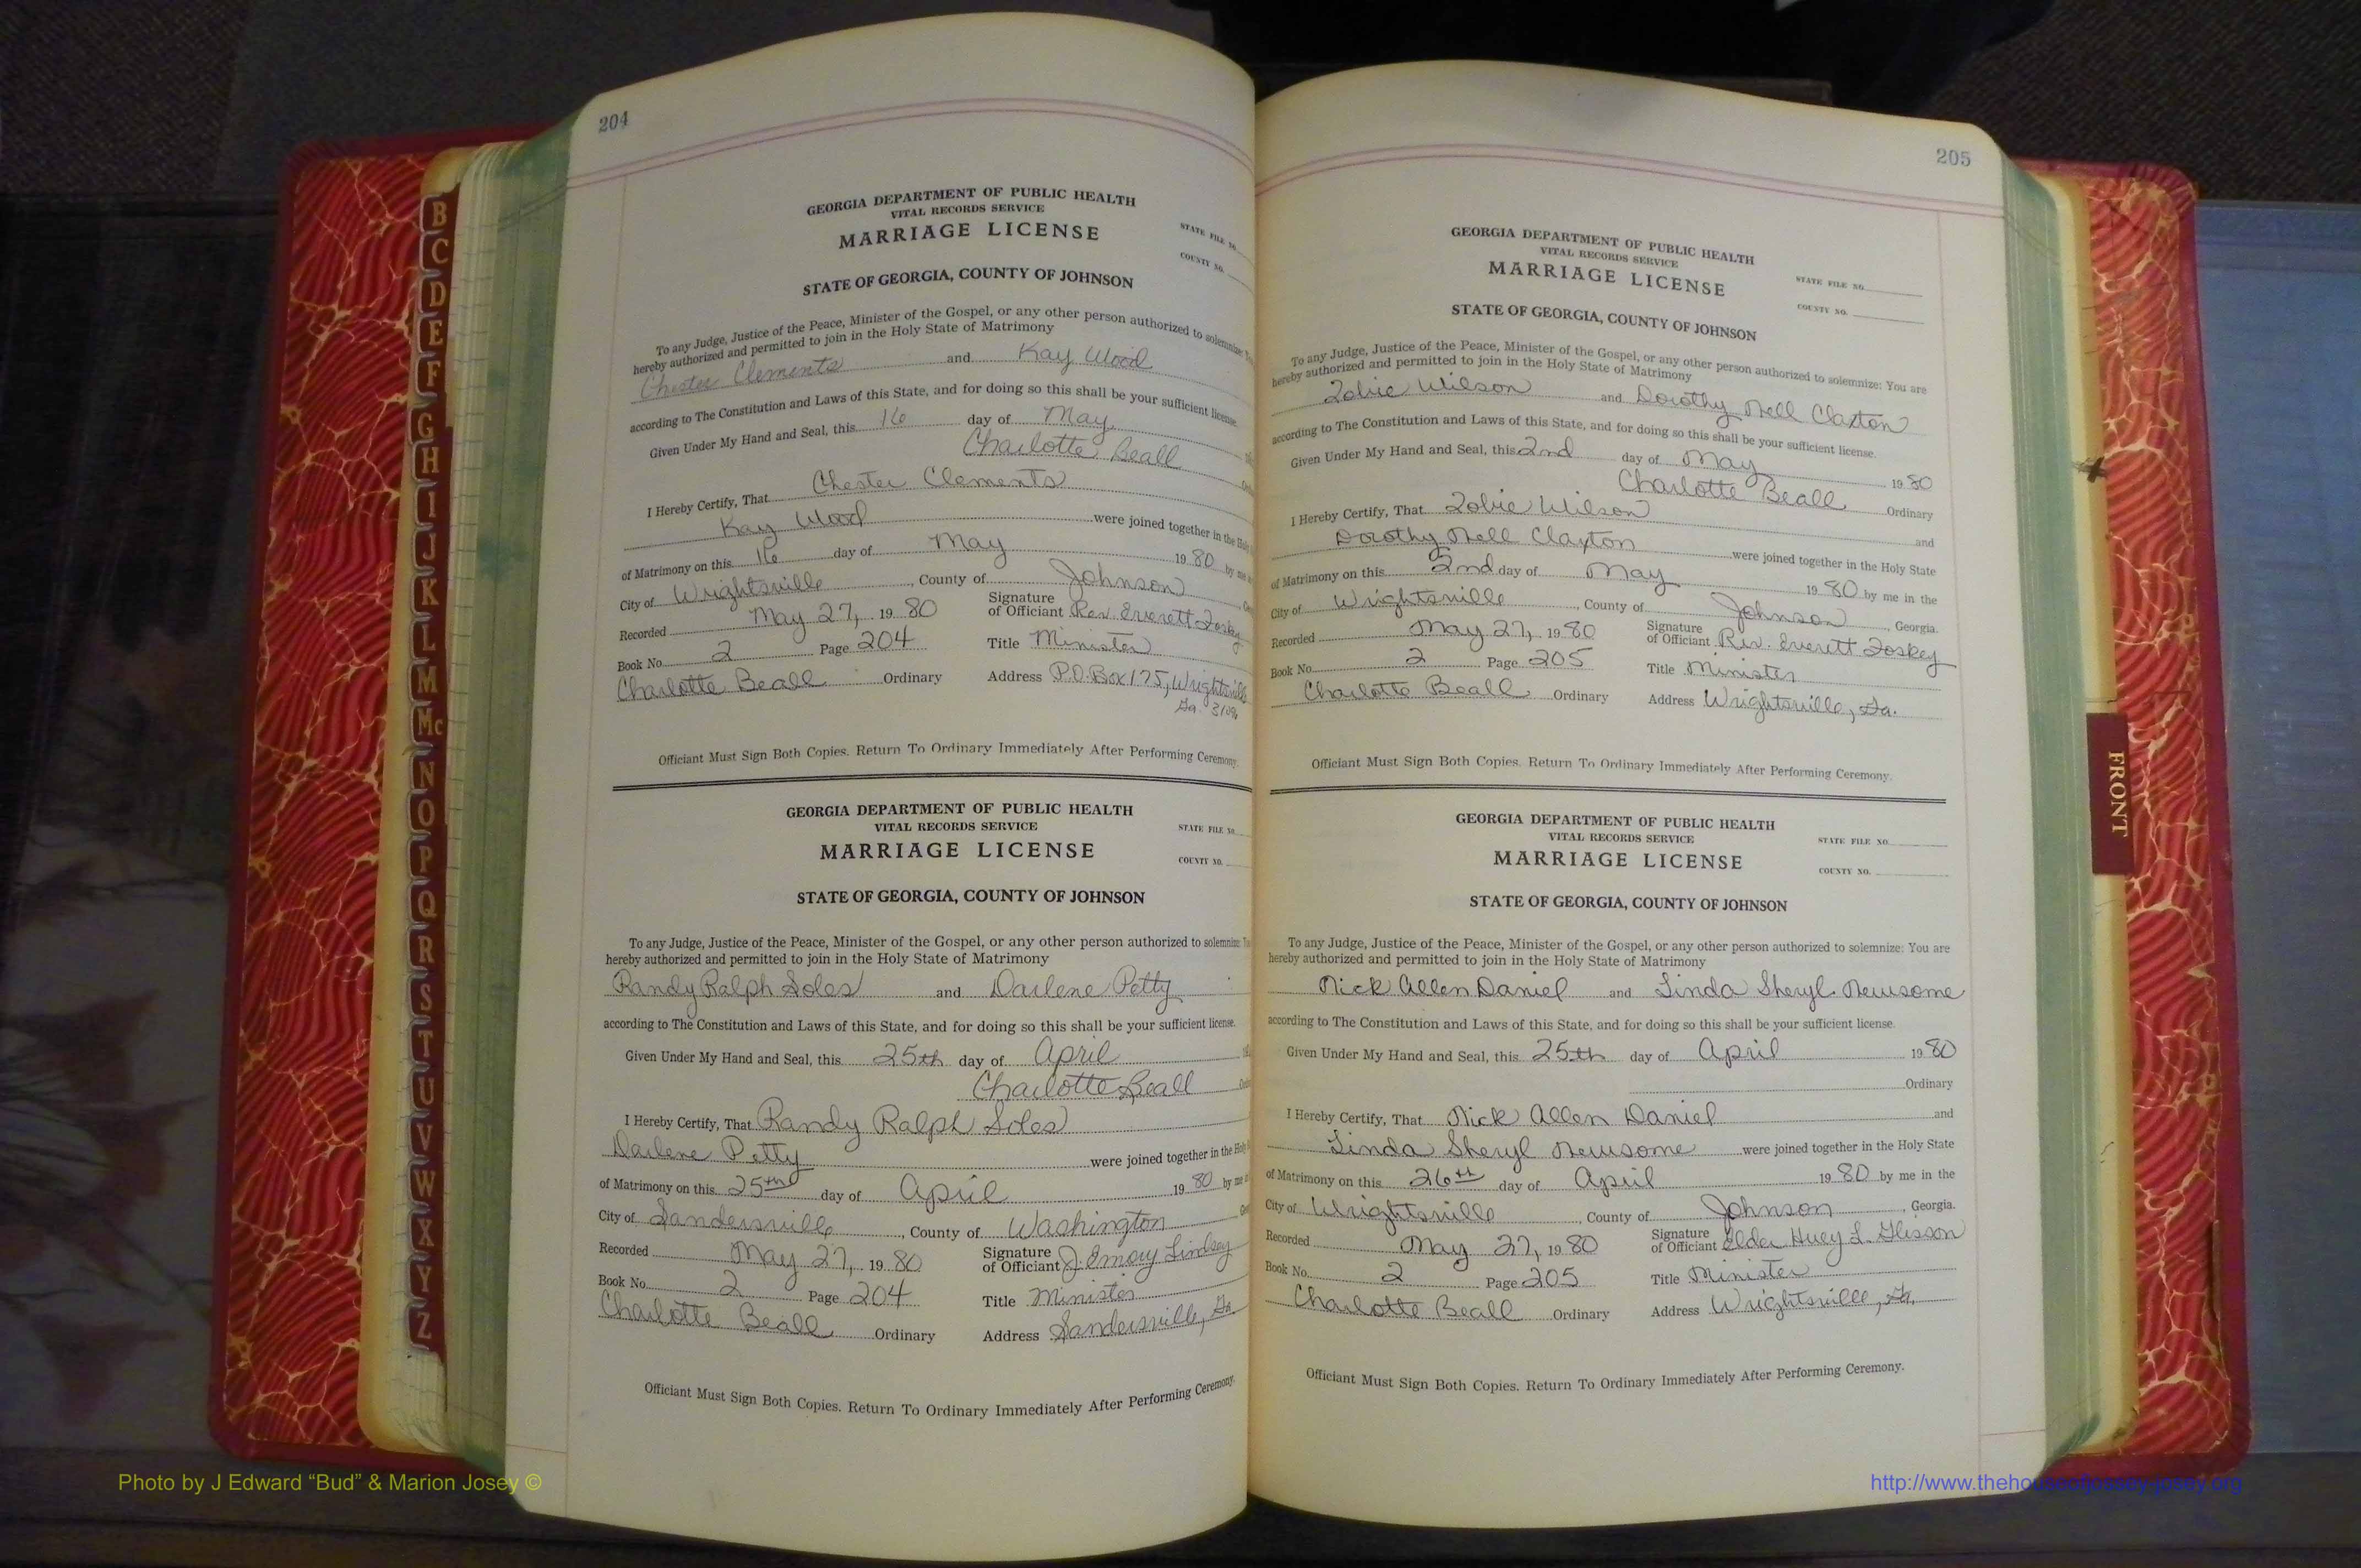 204
GEORGIA DEPARTMENT OF PUBLIC HEALTH
VITAL RECORDS SERVICE
MARRIAGE LICENSE
STATE FILE NO.
COUNTY NO.
STATE OF GEORGIA, COUNTY OF JOHNSON
To any Judge, Justice of the Peace, Minister of the Gospel, or any other person authorized to solemnize:
hereby authorized and permitted to join in the Holy State of Matrimony
Chester Clements and Kay Wood
according to The Constitution and Laws of this State, and for doing so this shall be your sufficient license.
Given Under My Hand and Seal, this 16 day of May
Charlotte Beall
I Hereby Certify, That Chester Clements
Kay Wood were joined together in the
of Matrimony on this 16 day of May 19 80 by me
City of Wrightsville, County of Johnson
Recorded May 27, 19 80 Signature of Officiant Rev. Everett
Book No. 2 Page 204 Title Minister
Charlotte Beall Ordinary Address P.O. Box 175, Wrightsville
Ga. 31096
Officiant Must Sign Both Copies. Return To Ordinary Immediately After Performing Ceremony.
GEORGIA DEPARTMENT OF PUBLIC HEALTH
VITAL RECORDS SERVICE
MARRIAGE LICENSE
STATE FILE NO.
COUNTY NO.
STATE OF GEORGIA, COUNTY OF JOHNSON
To any Judge, Justice of the Peace, Minister of the Gospel, or any other person authorized to solemnize:
hereby authorized and permitted to join in the Holy State of Matrimony
Randy Ralph Soles and Darlene Petty
according to The Constitution and Laws of this State, and for doing so this shall be your sufficient license.
Given Under My Hand and Seal, this 25th day of April
Charlotte Beall
I Hereby Certify, That Randy Ralph Soles
Darlene Petty were joined together in the
of Matrimony on this 25th day of April 19 80 by me
City of Sandersville, County of Washington
Recorded May 27, 19 80 Signature of Officiant J. Emory Lindsey
Book No. 2 Page 204 Title Minister
Charlotte Beall Ordinary Address Sandersville, Ga.
Officiant Must Sign Both Copies. Return To Ordinary Immediately After Performing Ceremony.
205
GEORGIA DEPARTMENT OF PUBLIC HEALTH
VITAL RECORDS SERVICE
MARRIAGE LICENSE
STATE FILE NO.
COUNTY NO.
STATE OF GEORGIA, COUNTY OF JOHNSON
To any Judge, Justice of the Peace, Minister of the Gospel, or any other person authorized to solemnize: You are
hereby authorized and permitted to join in the Holy State of Matrimony
Wilson and Dorothy Nell Claxton
according to The Constitution and Laws of this State, and for doing so this shall be your sufficient license.
Given Under My Hand and Seal, this 2nd day of May 19 80
Charlotte Beall Ordinary
I Hereby Certify, That Wilson and
Dorothy Nell Claxton were joined together in the Holy State
of Matrimony on this 2nd day of May 19 80 by me in the
City of Wrightsville, County of Johnson, Georgia.
Recorded May 27, 19 80 Signature of Officiant Rev. Everett
Book No. 2 Page 205 Title Minister
Charlotte Beall Ordinary Address Wrightsville, Ga.
Officiant Must Sign Both Copies. Return To Ordinary Immediately After Performing Ceremony.
GEORGIA DEPARTMENT OF PUBLIC HEALTH
VITAL RECORDS SERVICE
MARRIAGE LICENSE
STATE FILE NO.
COUNTY NO.
STATE OF GEORGIA, COUNTY OF JOHNSON
To any Judge, Justice of the Peace, Minister of the Gospel, or any other person authorized to solemnize: You are
hereby authorized and permitted to join in the Holy State of Matrimony
Nick Allen Daniel and Linda Sheryl Newsome
according to The Constitution and Laws of this State, and for doing so this shall be your sufficient license.
Given Under My Hand and Seal, this 25th day of April 19 80
Ordinary
I Hereby Certify, That Nick Allen Daniel and
Linda Sheryl Newsome were joined together in the Holy State
of Matrimony on this 26th day of April 19 80 by me in the
City of Wrightsville, County of Johnson, Georgia.
Recorded May 27, 19 80 Signature of Officiant Elder Huey L. Glisson
Book No. 2 Page 205 Title Minister
Charlotte Beall Ordinary Address Wrightsville, Ga.
Officiant Must Sign Both Copies. Return To Ordinary Immediately After Performing Ceremony.
B
C
D
E
F
G
H
I
J
K
L
M
Mc
N
O
P
Q
R
S
T
U
V
W
X
Y
Z
FRONT
Photo by J Edward “Bud” & Marion Josey ©
http://www.thehouseofjossey-josey.org